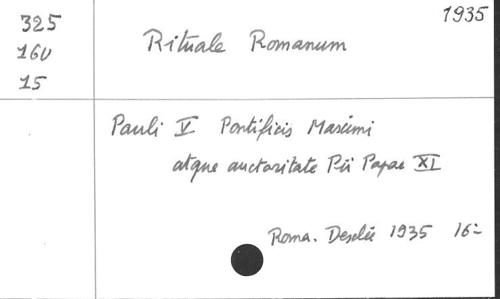 1935
325
160
15
Rituale Romanum
Pauli V Pontificis Maximi
atque auctoritate Pii Papae XI
Roma. Desclée 1935 16=